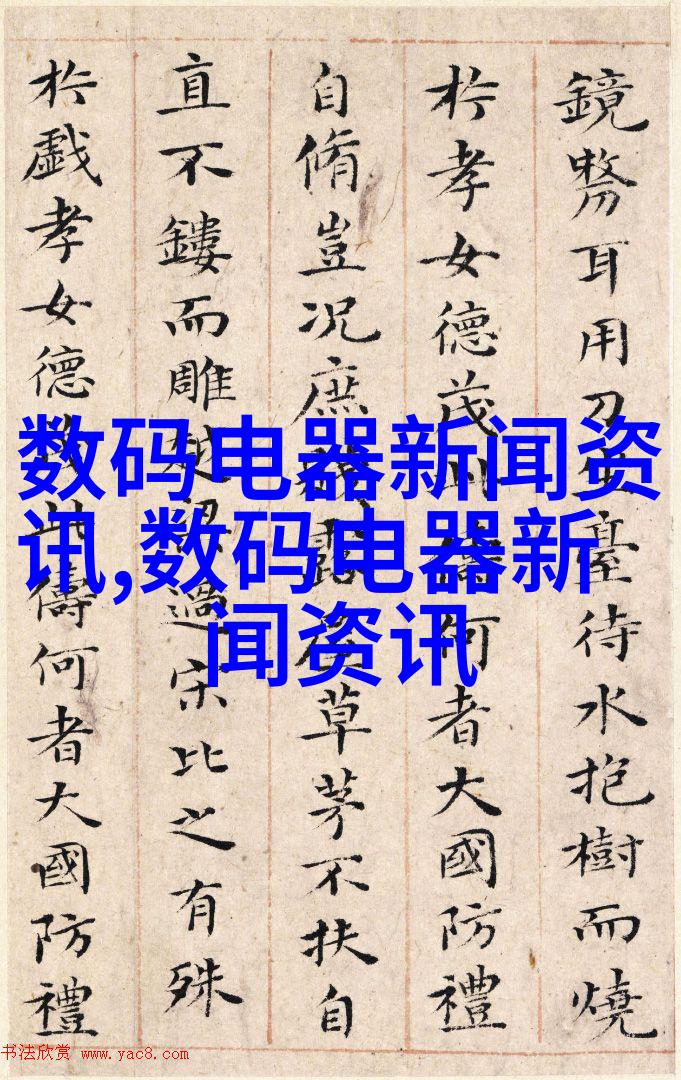 鏡剺耳用刀坐臺待水抱樹而燒
於孝女德茂此儔何者大國防禮
自脩豈況庶賤露屋草茅不扶自
直不鏤而雕越梁過宋比之有殊
於戲孝女德茂此儔何者大國防禮
数码电器新闻资
讯,数码电器新
闻资讯
书法欣赏 www.yac8.com